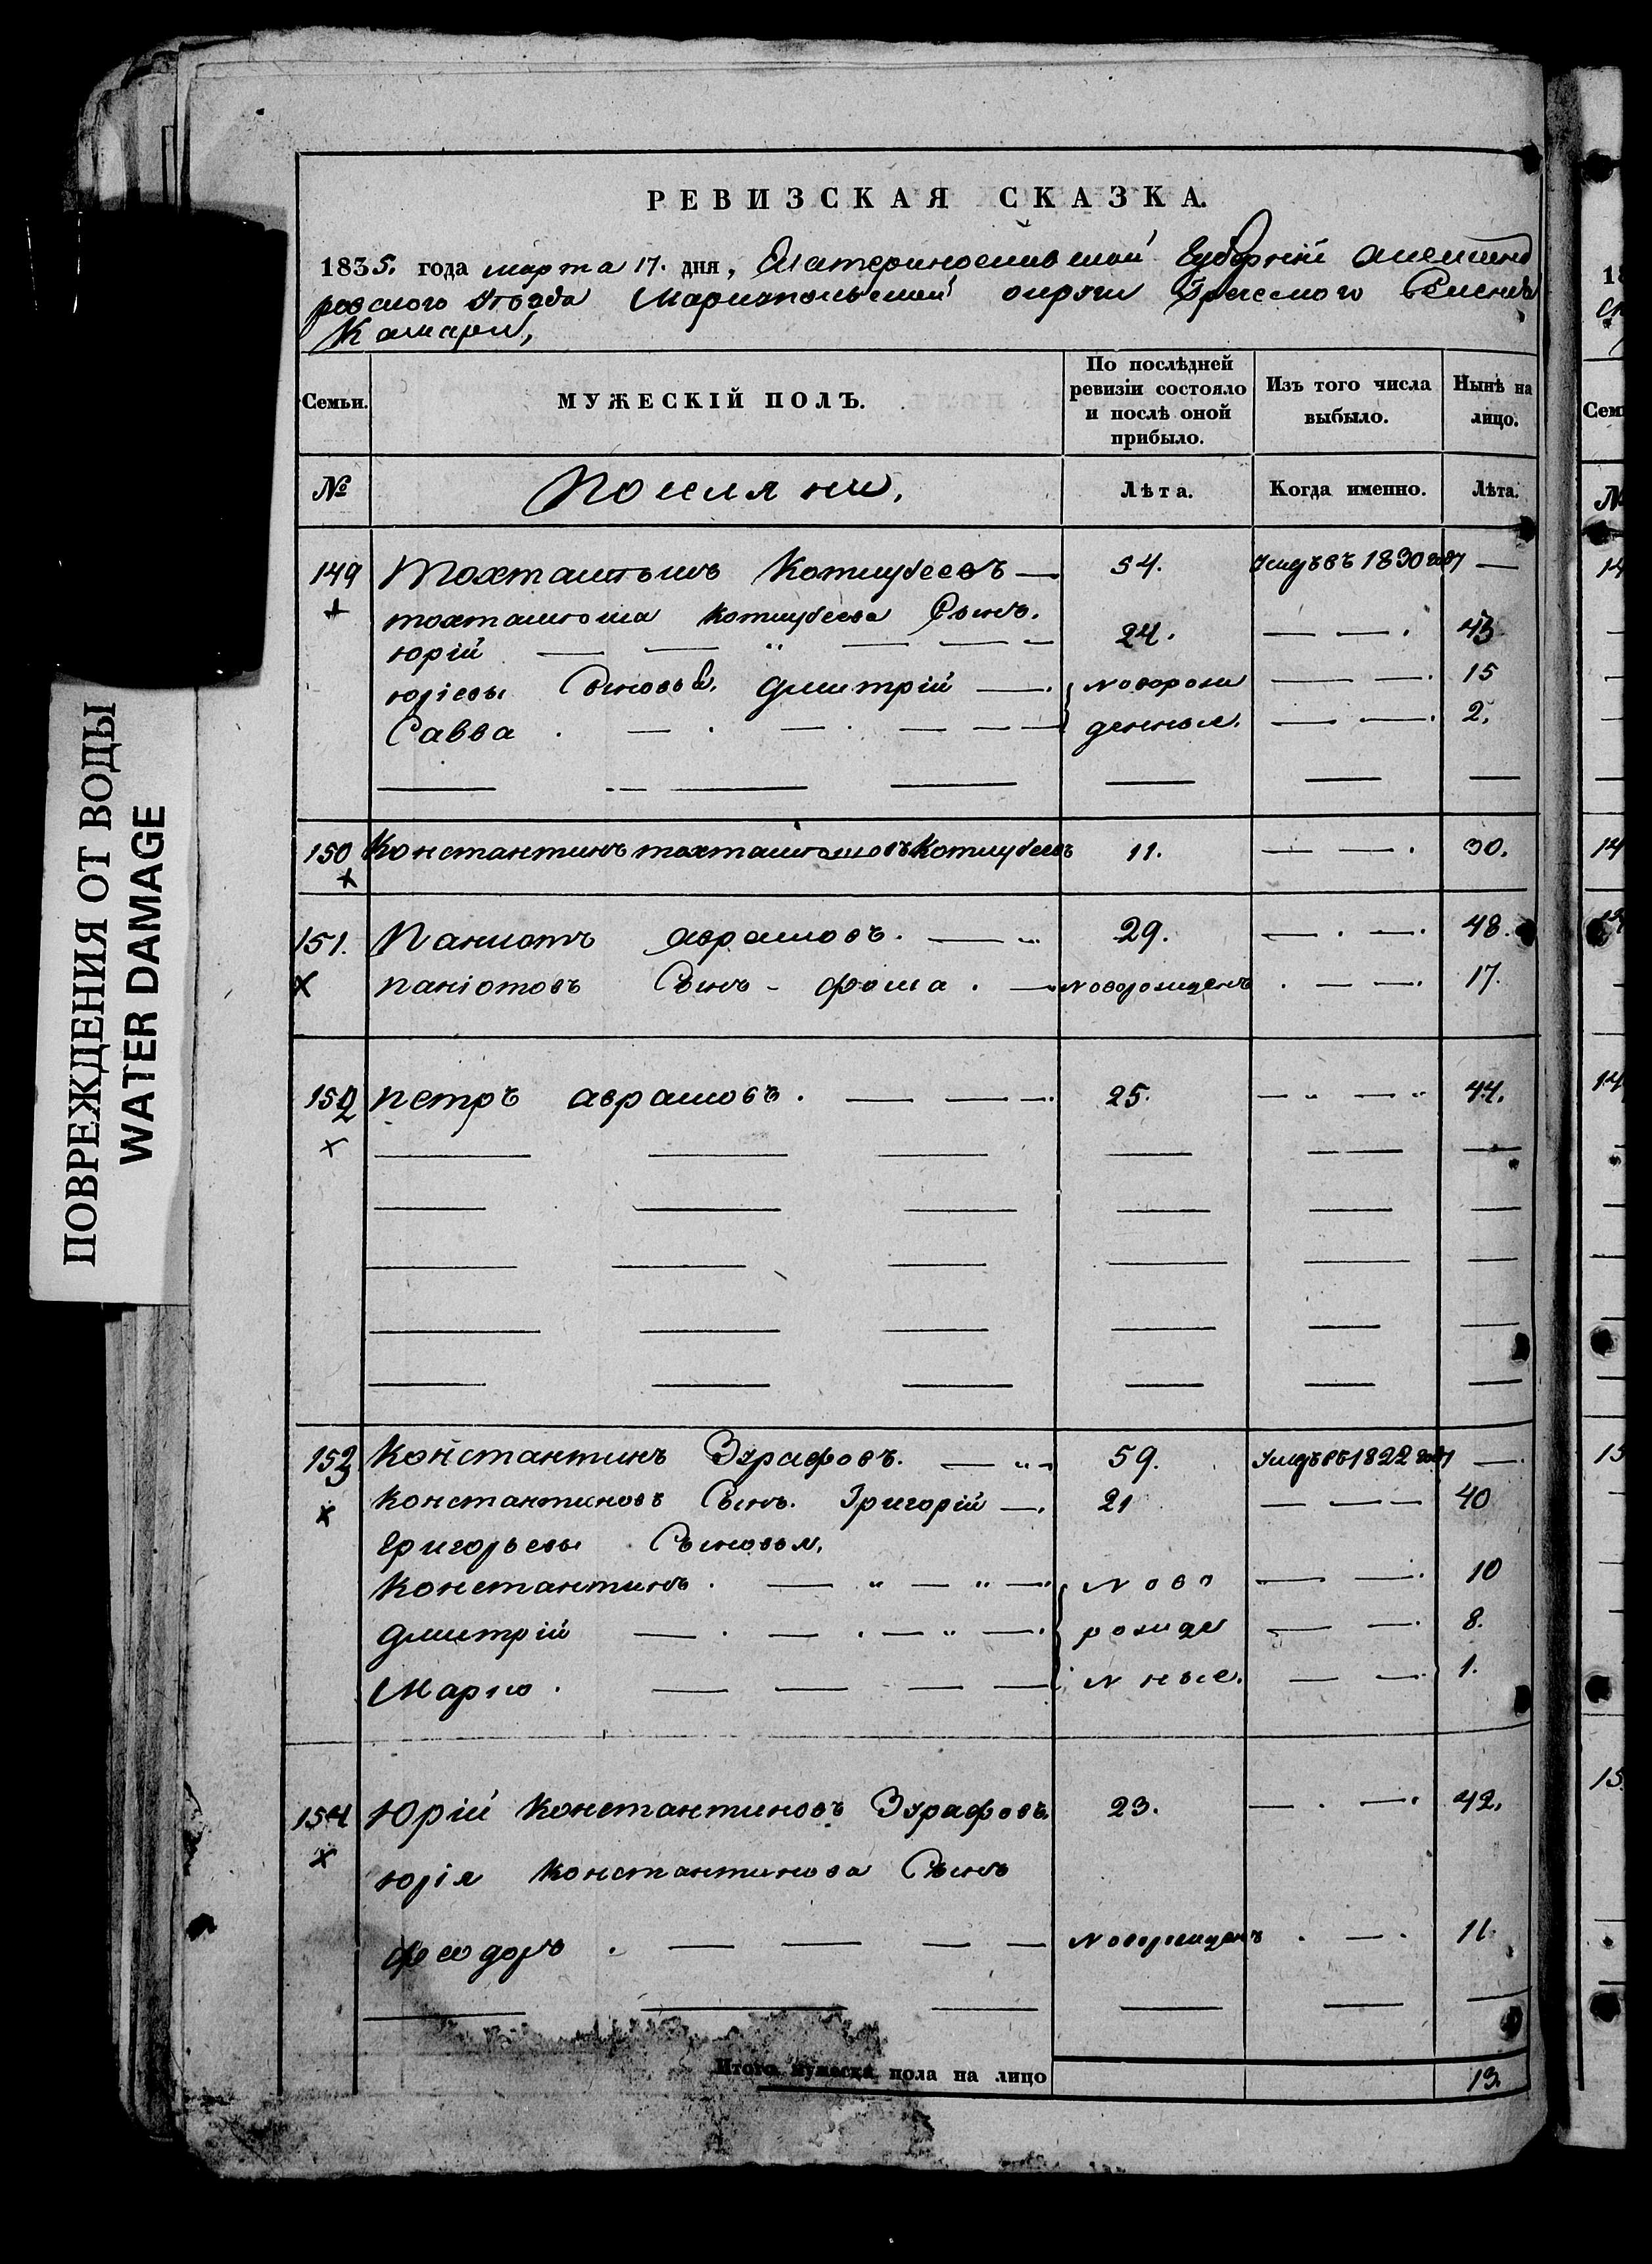 РЕВИЗСКАЯ СКАЗКА.
1835. года марта 17. дня, Екатеринославской Губерніи Александ
ровского Уезда Мариупольской округи Греческого Селенія
Камари,
Семьи. МУЖЕСКІЙ ПОЛЪ. По послѣдней ревизіи состояло и послѣ оной прибыло. Изъ того числа выбыло. Нынѣ на лицо.
№ Поселяне, Лѣта. Когда именно. Лѣта.
149 Тохтамышъ Котлубеевъ — 54. Умеръ въ 1830 году —
тохтамыша котлубеева Сынъ.
юрій — — " — — — 24. — — . 43
юріевы Сыновья. дмитрій — . новорож — — . 15
Савва . — . — . — — — денные. — — . 2.
150 Константинъ тохтамышовъ Котлубеевъ 11. — — . 30.
151. Паніотъ аврамовъ. — 29. — . — . 48.
паніотовъ Сынъ - фома . — новорожденъ . — — . 17.
152 петръ аврамовъ . — — . 25. — " — " 44.
153 Константинъ Эграфовъ. — 59. Умеръ въ 1822 году — .
константиновъ Сынъ. Григорій — . 21 — — — 40
григорьевы Сыновья,
константинъ . — " — " — ново — — . 10
дмитрій — . — . — " — . рожде — — . 8.
Марко . — — — — нные. — — . 1.
154 Юрій Константиновъ Эграфовъ 23. — . — . 42.
юрія константинова Сынъ
феодоръ . — — — — новорожденъ . — . 11.
Итого мужеска пола на лицо 13.
ПОВРЕЖДЕНИЯ ОТ ВОДЫ
WATER DAMAGE